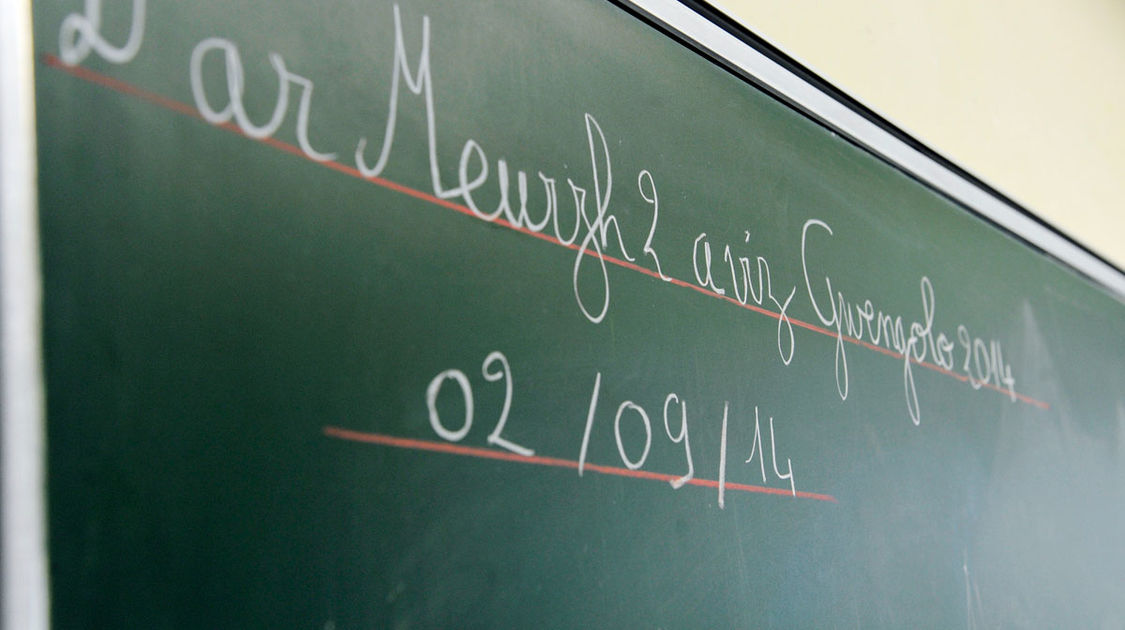 D'ar Meurzh 2 a viz Gwengolo 2014
02/09/14